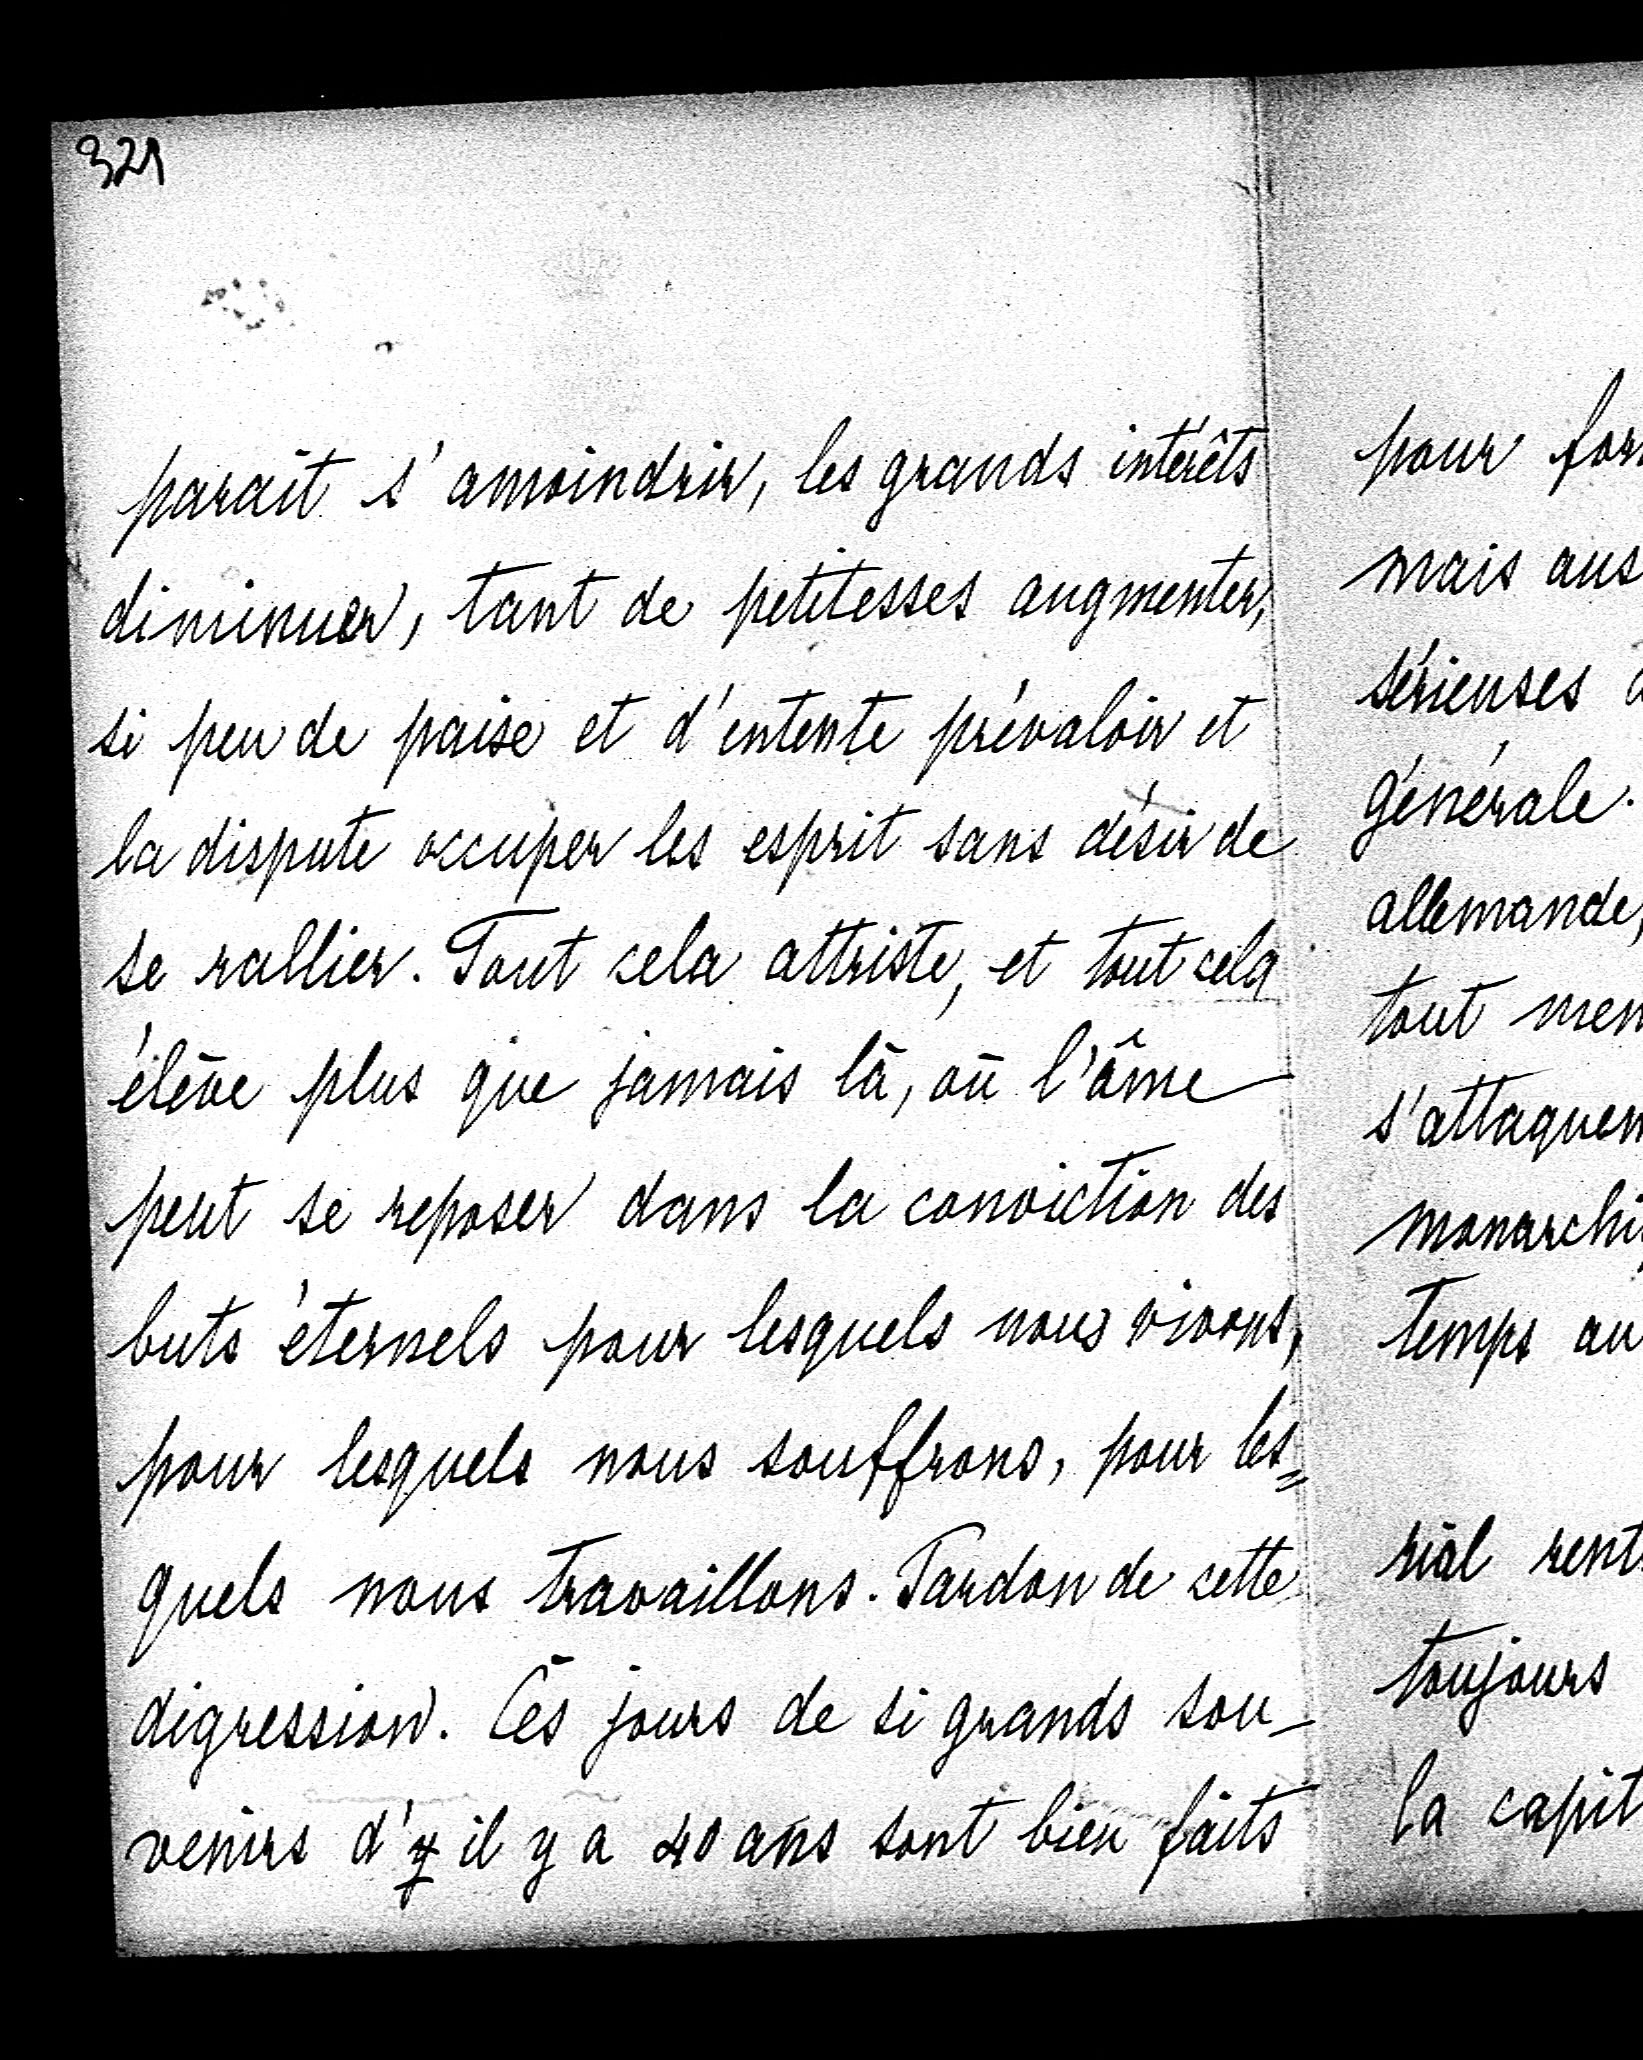 321
paraît s'amoindrir, les grands intérêts
diminuer, tant de petitesses augmenter,
si peu de paise et d'entente prévaloir et
la dispute occuper les esprit sans désir de
se rallier. Tout cela attriste, et tout cela
élève plus que jamais là, où l'âme
peut se reposer dans la conviction des
buts éternels pour lesquels nous vivons,
pour lesquels nous souffrons, pour les=
quels nous travaillons. Pardon de cette
digression. Ces jours de si grands sou-
venirs d' il y a 40 ans sont bien faits
pour for
mais aus
sérieuses
générale.
allemande,
tout men
s'attaquen
monarchi
temps au
rial rent
toujours
la capit